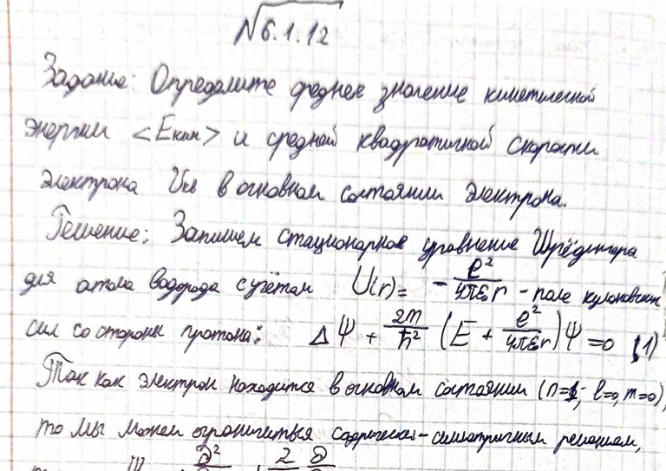 №6.1.12
Задание: Определите среднее значение кинетической
энергии <Eкин> и средней квадратичной скорости
электрона Uкв в основном состоянии электрона.
Решение: Запишем стационарное уравнение Шрёдингера
для атома водорода с учётом U(r) = - e²/4πε₀r - поле кулоновских
сил со стороны протона: ΔΨ + 2m/ħ² (E + e²/4πε₀r)Ψ = 0 (1)
Так как электрон находится в основном состоянии (n=1; l=0, m=0),
то мы можем ограничиться сферически-симметричным решением,
Ψ ∂² 2 ∂